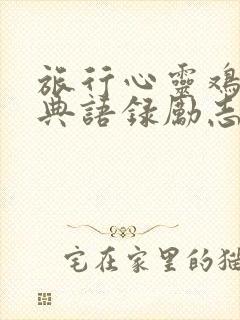 旅行心靈鸡
典語録勵志
宅在家里的猫